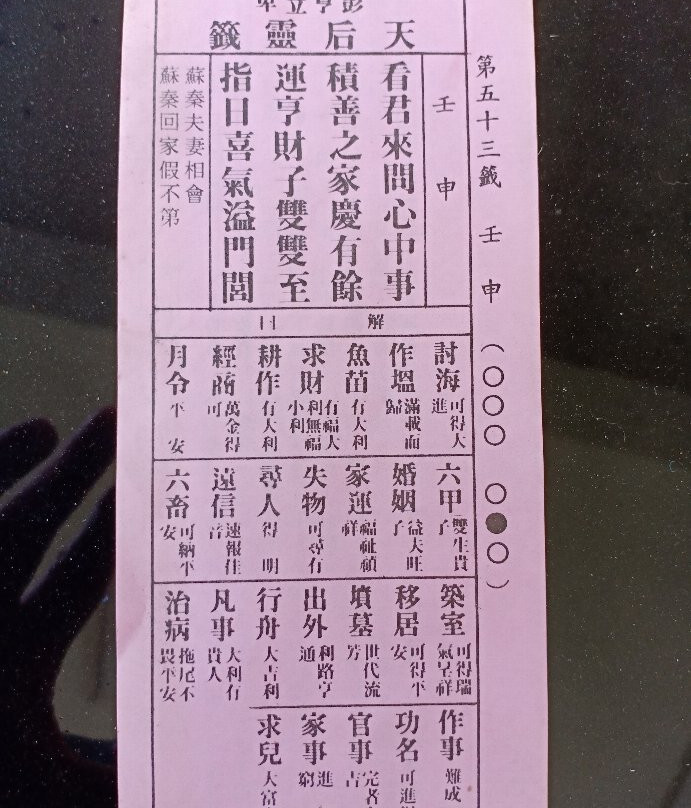 第五十三籤 壬申 (○○○ ○●○)
天后靈籤
壬申
看君來問心中事
積善之家慶有餘
運亨財子雙雙至
指日喜氣溢門閭
蘇秦夫妻相會
蘇秦回家假不第
解曰
討海 可得大進
作塭 滿載而歸
魚苗 有大利
求財 有福大利無福小利
耕作 有大利
經商 萬金得可
月令 平安
六甲 雙生貴子
婚姻 益夫旺子
家運 福祉禎祥
失物 可尋有
尋人 得明
遠信 速報佳音
六畜 可納平安
築室 可得瑞氣呈祥
移居 可得平安
墳墓 世代流芳
出外 利路亨通
行舟 大吉利
凡事 大利有貴人
治病 拖尾不畏平安
作事 難成
功名 可進
官事 完者吉
家事 進窮
求兒 大富